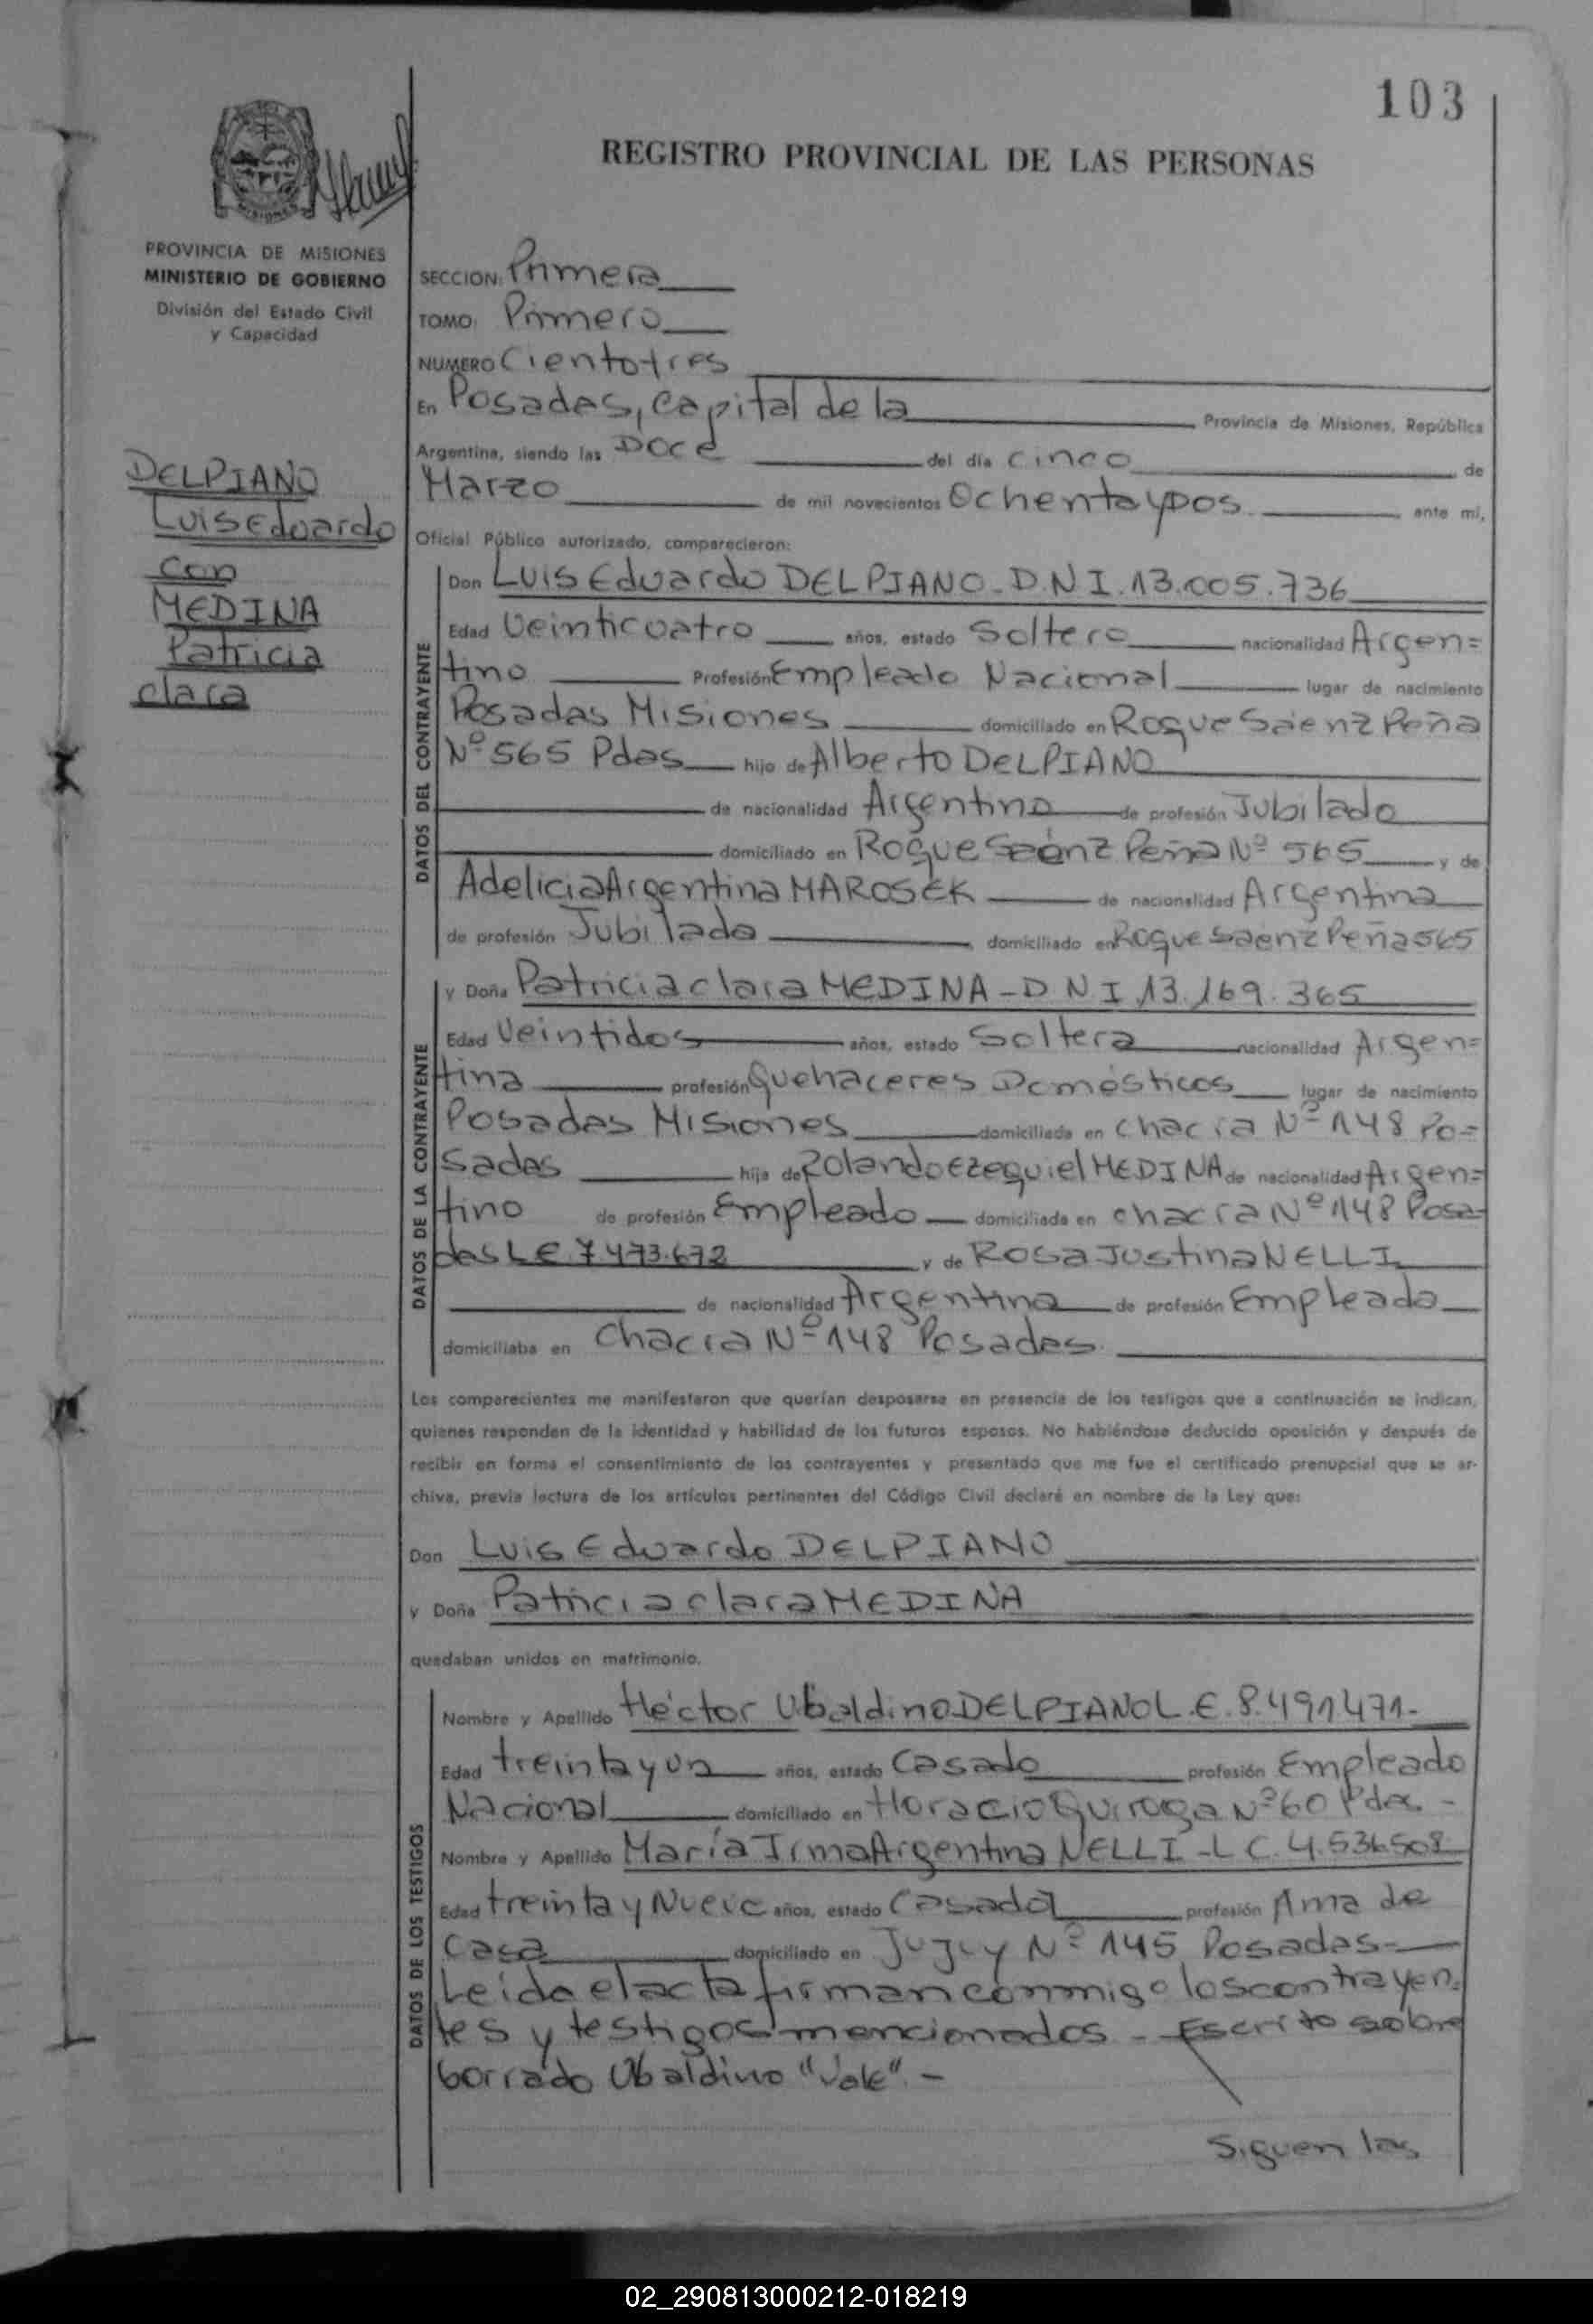 103
REGISTRO PROVINCIAL DE LAS PERSONAS
MISIONES
PROVINCIA DE MISIONES
MINISTERIO DE GOBIERNO
División del Estado Civil
y Capacidad
SECCION: Primera
TOMO: Primero
NUMERO Ciento tres
En Posadas, capital de la Provincia de Misiones, República
Argentina, siendo las Doce del día cinco de
Marzo de mil novecientos Ochenta y Dos. ante mi,
Oficial Público autorizado, comparecieron:
DELPIANO
Luis Eduardo
con
MEDINA
Patricia
clara
DATOS DEL CONTRAYENTE
Don Luis Eduardo DELPIANO - D.N.I. 13.005.736
Edad Veinticuatro años, estado Soltero nacionalidad Argen=
tino Profesión Empleado Nacional lugar de nacimiento
Posadas Misiones domiciliado en Roque Saenz Peña
Nº 565 Pdas hijo de Alberto DELPIANO
de nacionalidad Argentino de profesión Jubilado
domiciliado en Roque Saénz Peña Nº 565 y de
Adelicia Argentina MAROSEK de nacionalidad Argentina
de profesión Jubilada domiciliado en Roque Saenz Peña 565
DATOS DE LA CONTRAYENTE
y Doña Patricia clara MEDINA - D.N.I 13.169.365
Edad Veintidos años, estado Soltera nacionalidad Argen=
tina profesión Quehaceres Domésticos lugar de nacimiento
Posadas Misiones domiciliada en chacra Nº 148 Po=
sadas hija de Rolando Ezequiel MEDINA de nacionalidad Argen=
tino de profesión Empleado domiciliada en chacra Nº 148 Posa=
das L E 7.473.672 y de Rosa Justina NELLI
de nacionalidad Argentina de profesión Empleada
domiciliaba en Chacra Nº 148 Posadas.
Los comparecientes me manifestaron que querían desposarse en presencia de los testigos que a continuación se indican,
quienes responden de la identidad y habilidad de los futuros esposos. No habiéndose deducido oposición y después de
recibir en forma el consentimiento de los contrayentes y presentado que me fue el certificado prenupcial que se ar-
chiva, previa lectura de los artículos pertinentes del Código Civil declaré en nombre de la Ley que:
Don Luis Eduardo DELPIANO
y Doña Patricia clara MEDINA
quedaban unidos en matrimonio.
DATOS DE LOS TESTIGOS
Nombre y Apellido Héctor Ubaldino DELPIANO L.E. 8.491.471.-
Edad treinta y un años, estado Casado profesión Empleado
Nacional domiciliado en Horacio Quiroga Nº 60 Pdas -
Nombre y Apellido María Irma Argentina NELLI - L C. 4.536.508
Edad treinta y Nueve años, estado Casada profesión Ama de
Casa domiciliado en Jujuy Nº 145 Posadas -
Leída el acta firman conmigo los contrayen=
tes y testigos mencionados - Escrito sobre
borrado Ubaldino "Vale". -
Siguen las
02_290813000212-018219